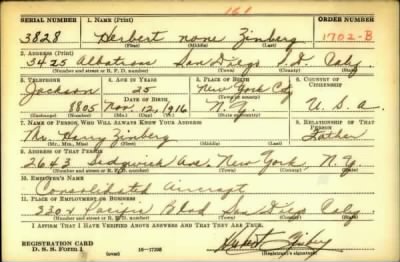 161
SERIAL NUMBER 1. NAME (Print) ORDER NUMBER
3828 Herbert none Zinberg 1702-B
(First) (Middle) (Last)
2. ADDRESS (Print)
3425 Albatross San Diego S.D. Calif.
(Number and street or R. F. D. number) (Town) (County) (State)
3. TELEPHONE 4. AGE IN YEARS 5. PLACE OF BIRTH 6. COUNTRY OF CITIZENSHIP
Jackson 25 New York City
DATE OF BIRTH (Town or county)
8805 Nov. 12, 1916 N.Y. U.S.A.
(Exchange) (Number) (Mo.) (Day) (Yr.) (State or country)
7. NAME OF PERSON WHO WILL ALWAYS KNOW YOUR ADDRESS 8. RELATIONSHIP OF THAT PERSON
Mr. Harry Zinberg Father
(Mr., Mrs., Miss) (First) (Middle) (Last)
9. ADDRESS OF THAT PERSON
2643 Sedgwick Ave. New York, N.Y.
(Number and street or R. F. D. number) (Town) (County) (State)
10. EMPLOYER'S NAME
Consolidated Aircraft
11. PLACE OF EMPLOYMENT OR BUSINESS
Pacific Blvd San Diego Calif.
(Number and street or R. F. D. number) (Town) (County) (State)
I AFFIRM THAT I HAVE VERIFIED ABOVE ANSWERS AND THAT THEY ARE TRUE.
REGISTRATION CARD
D. S. S. Form 1 16-17298 (Registrant's signature)